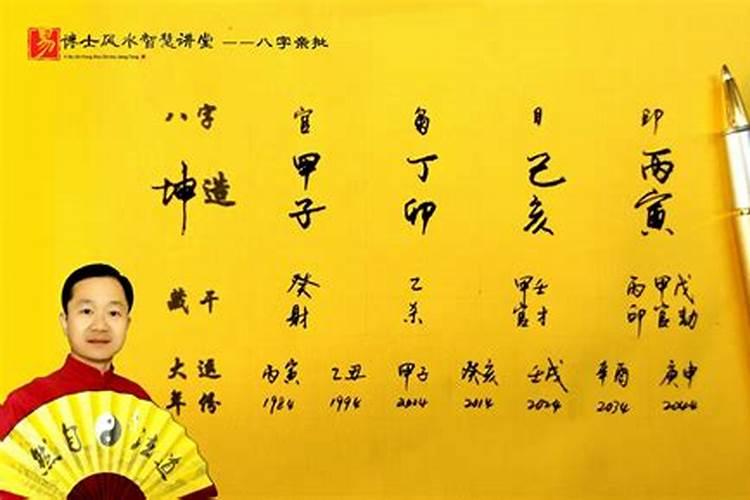 易 博士风水智慧讲堂 ——八字亲批
八字 官 自 印
坤造 甲子 丁卯 己亥 丙寅
藏干 癸 乙 甲壬 丙甲戊
财 杀 官才 印官劫
大运 丙寅 乙丑 甲子 癸亥 壬戌 辛酉 庚申
年份 1984 1994 2004 2014 2024 2034 2044
然自 法道